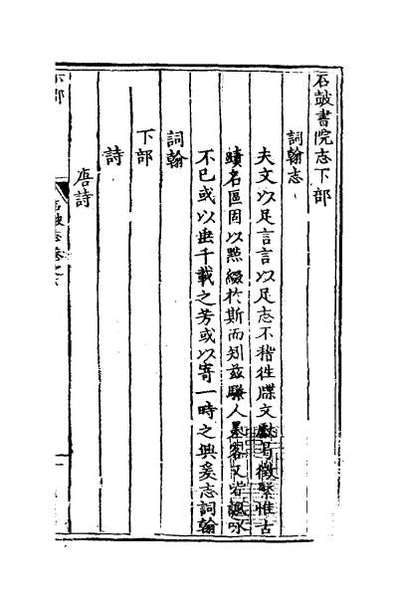 石鼓書院志下部
詞翰志
夫文以足言言以足志不稽徃牒文獻曷徵緊惟古
蹟名區固以㸃綴扵斯而矧茲騷人墨客又皆諷咏
不已或以垂千載之芳或以寄一時之興爰志詞翰
詞翰
下部
詩
唐詩